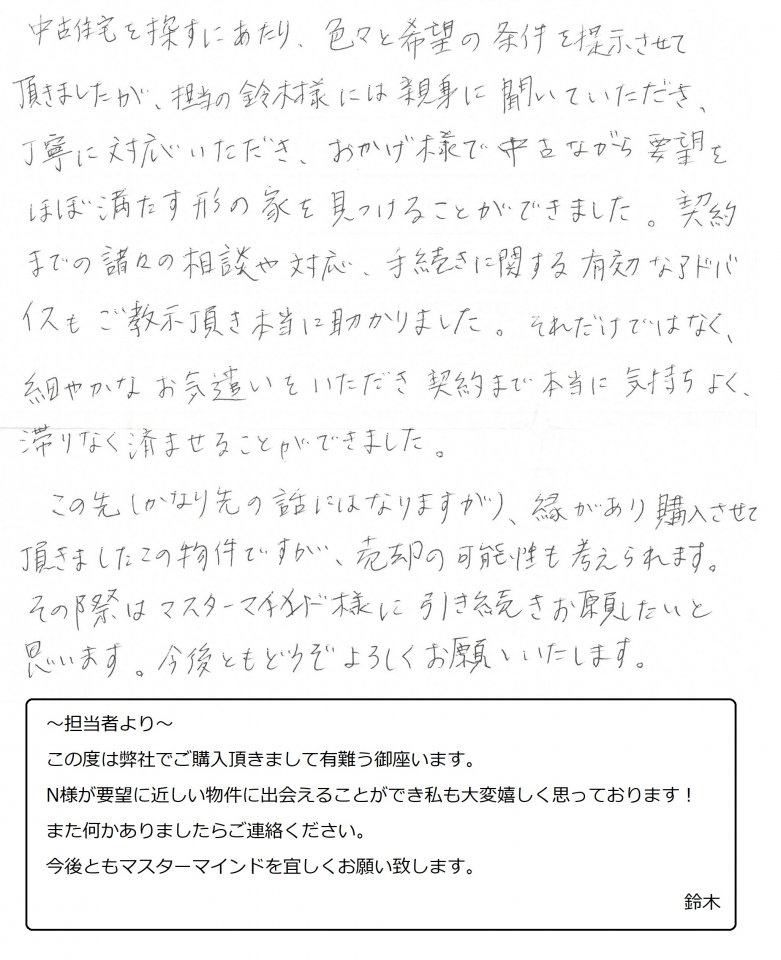 中古住宅を探すにあたり、色々と希望の条件を提示させて
頂きましたが、担当の鈴木様には親身に聞いていただき、
丁寧に対応いただき、おかげ様で中古ながら要望を
ほぼ満たす形の家を見つけることができました。契約
までの諸々の相談や対応、手続きに関する有効なアドバ
イスもご教示頂き本当に助かりました。それだけではなく、
細やかなお気遣いをいただき契約まで本当に気持ちよく、
滞りなく済ませることができました。
この先(かなり先の話にはなりますが)、縁があり購入させて
頂きましたこの物件ですが、売却の可能性も考えられます。
その際はマスターマインド様に引き続きお願したいと
思います。今後ともどうぞよろしくお願いいたします。
～担当者より～
この度は弊社でご購入頂きまして有難う御座います。
N様が要望に近しい物件に出会えることができ私も大変嬉しく思っております！
また何かありましたらご連絡ください。
今後ともマスターマインドを宜しくお願い致します。
鈴木